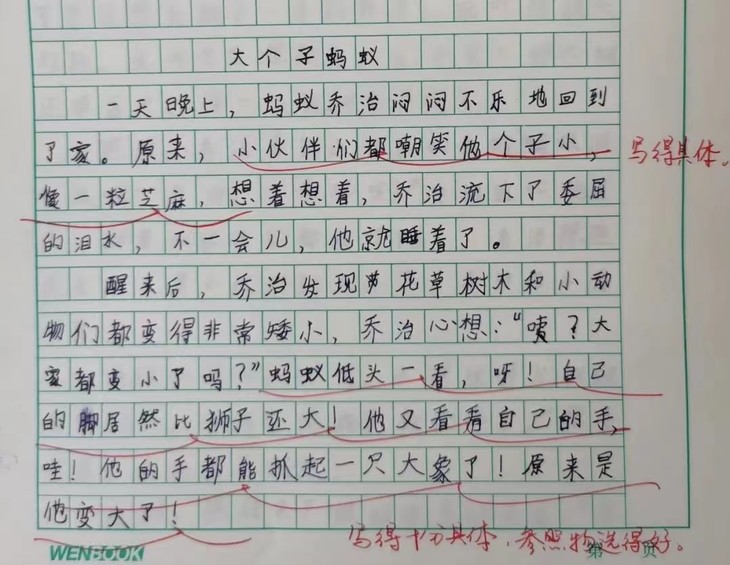 大个子蚂蚁
一天晚上，蚂蚁乔治闷闷不乐地回到
了家。原来，小伙伴们都嘲笑他个子小，
写得具体。
像一粒芝麻，想着想着，乔治流下了委屈
的泪水，不一会儿，他就睡着了。
醒来后，乔治发现花草树木和小动
物们都变得非常矮小，乔治心想：“咦？大
家都变小了吗？”蚂蚁低头一看，呀！自己
的脚居然比狮子还大！他又看看自己的手，
哇！他的手都能抓起一只大象了！原来是
他变大了！
写得十分具体，参照物选得好。
WENBOOK
第 页